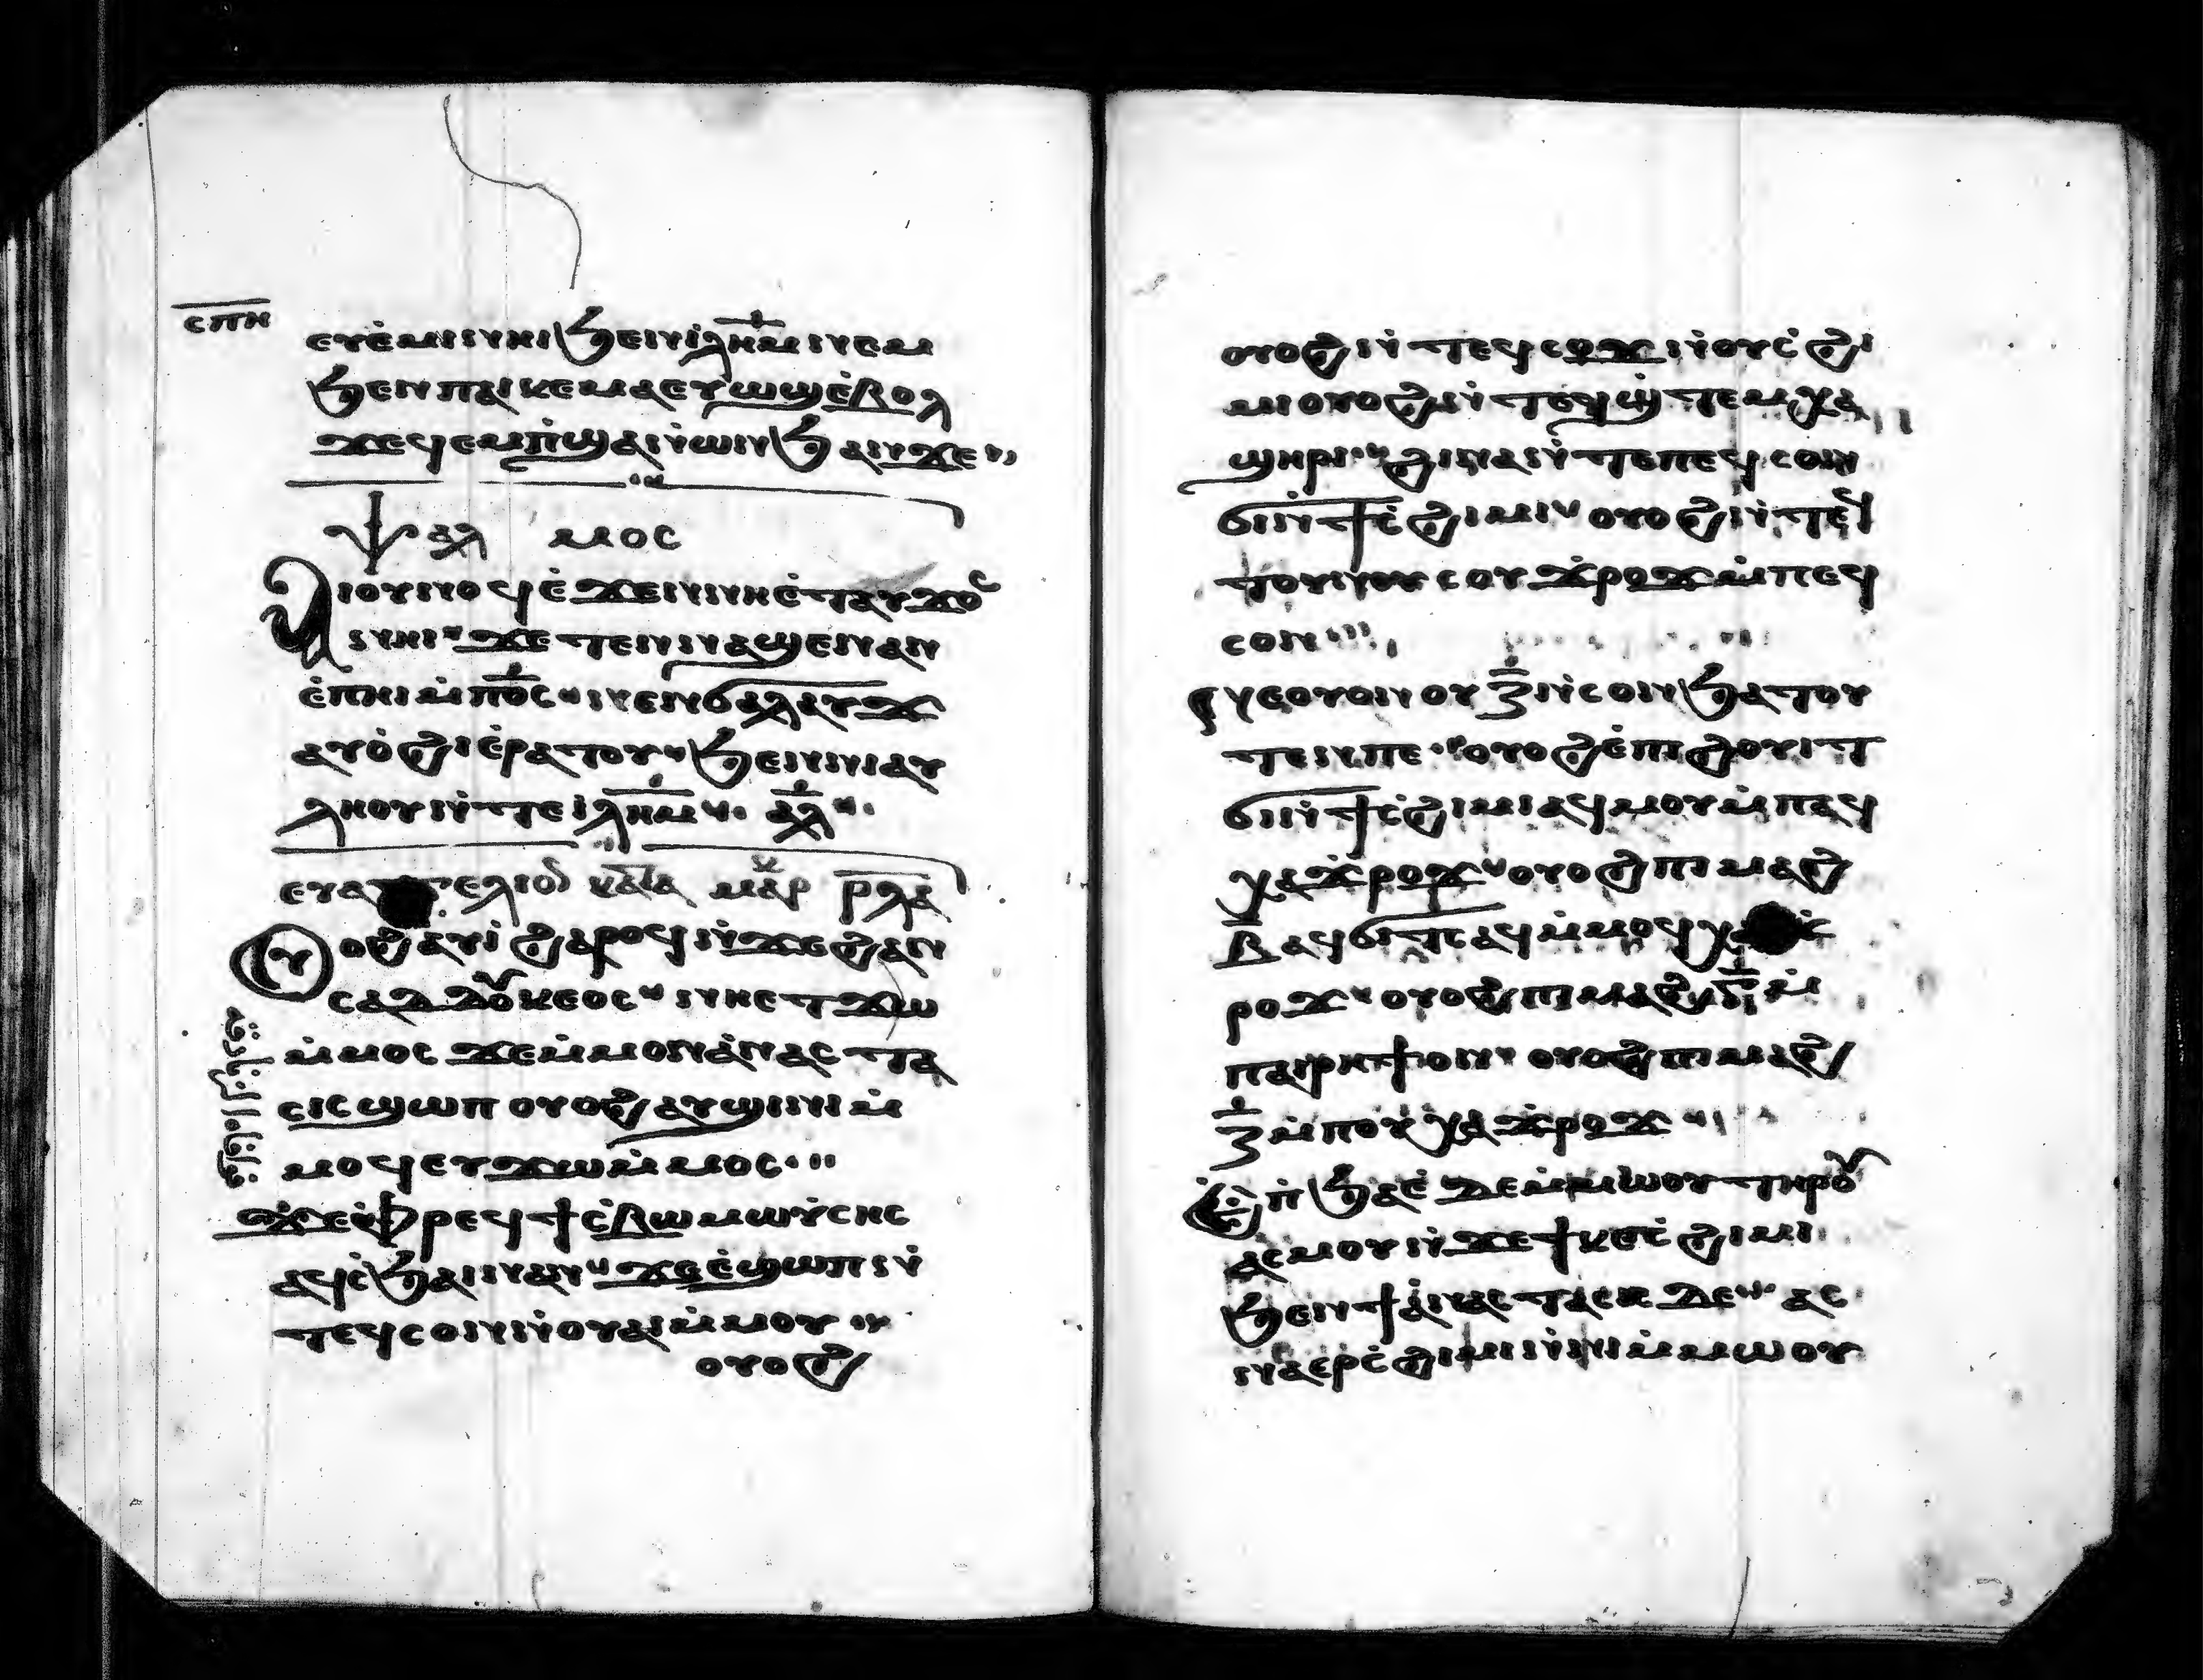 ⲥⲡⲏ
ⲉⲩⲉ̀ⲙⲓⲛⲏⲓϧⲉⲛⲓ̀ⲗⲏⲙ̅ⲛⲉⲙ
ϧⲉⲛⲡⲁⲓⲕⲉⲙⲁⲉⲩⲱϣⲉ̀ⲃⲟⲗ
ϫⲉϥⲉⲙⲡ̀ϣⲁⲛ̀ⲱⲛϧⲁⲛϫⲉ
ⲯⲁⲗ ⲙⲟⲥ
ⲁⲓⲟⲩⲛⲟϥⲉ̀ϫⲉⲛⲛⲏⲉ̀ⲧⲁⲩϫⲟⲥ
ⲛⲏⲓ ϫⲉ ⲧⲉⲛⲛⲁϣⲉⲛⲁⲛ
ⲉ̀ⲡⲏⲓⲙ̀ⲡⲟ̅ⲥ̅ ⲛⲉⲛϭⲁⲗⲁⲩϫ
ⲁⲩⲟ̀ϩⲓⲉ̀ⲣⲁⲧⲟⲩ ϧⲉⲛⲛⲓⲁⲩ
ⲗⲏⲟⲩⲛ̀ⲧⲉⲓⲗⲏⲙ̅ ⲁⲗ
ⲉⲩⲁⲅⲅⲉⲗⲓⲟⲛ ⲕⲁⲧⲁ ⲙⲁⲣ ⲣⲗⲁ
ⲟⲩⲟϩ ⲁⲩⲓ̀ ϩⲁⲣⲟϥ ⲛ̀ϫⲉϩⲁⲛ
ⲥⲁⲇⲇⲟⲩⲕⲉⲟⲥ ⲛⲏⲉⲧϫⲱ
ⲙ̀ⲙⲟⲥ ϫⲉⲙ̀ⲙⲟⲛⲁ̀ⲛⲁⲥⲧⲁ
ⲥⲓⲥ ϣⲱⲡ ⲟⲩⲟϩ ⲁⲩϣⲓⲛⲓ ⲙ̀
ⲙⲟϥ ⲉⲩϫⲱⲙ̀ⲙⲟⲥ
ϫⲉⲫⲣⲉϥϯⲥ̀ⲃⲱ ⲙⲱⲩ̀ⲥⲏⲥ
ⲁϥⲥ̀ϧⲁⲓⲛⲁⲛ ϫⲉⲉ̀ϣⲱⲡ ⲛ̀
ⲧⲉϥⲥⲟⲛⲛ̀ⲟⲩⲁⲓⲙ̀ⲙⲟⲩ
ⲟⲩⲟϩ
ⲟⲩⲟϩ ⲛ̀ⲧⲉϥⲥⲱϫⲛ̀ⲟⲩⲥ̀ϩⲓ
ⲙⲓ ⲟⲩⲟϩ ⲛ̀ⲧⲉϥϣ̀ⲧⲉⲙⲭⲁ
ϣⲏⲣⲓ ϩⲓⲛⲁ ⲛ̀ⲧⲉⲡⲉϥⲥⲟⲛ
ϭⲓⲛ̀ϯⲥ̀ϩⲓⲙⲓ ⲟⲩⲟϩ ⲛ̀ⲧⲉϥ
ⲧⲟⲩⲛⲟⲩⲥ ⲟⲩϫ̀ⲣⲟϫ ⲙ̀ⲡⲉϥ
ⲥⲟⲛ
ⲛⲉⲟⲩⲟⲛ ⲟⲩⲍ̅ⲛ̀ⲥⲟⲛ ϧⲁⲧⲟⲩ
ⲧⲉⲛⲡⲉ ⲟⲩⲟϩ ⲉ̀ⲡⲓϩⲟⲩⲓⲧ
ϭⲓⲛ̀ϯⲥ̀ϩⲓⲙⲓ ⲁϥⲙⲟⲩ ⲙ̀ⲡⲁϥ
ⲭⲁϫ̀ⲣⲟϫ ⲟⲩⲟϩ ⲡⲓⲙⲁϩ
ⲃ̅ ⲁϥϭⲓⲧⲥ ⲁϥⲙ̀ⲙⲟϥ
ⲣⲟϫ ⲟⲩⲟϩ ⲡⲓⲙⲁϩⲅ̅ ⲙ̀
ⲡⲁⲓⲣⲏϯⲟⲛ ⲟⲩⲟϩ ⲡⲓⲙⲁϩ
ⲍ̅ ⲙ̀ⲡⲟⲩⲭⲁϫ̀ⲣⲟϫ
ⲉⲡ̀ϧⲁⲉ̀ ⲇⲉⲙ̀ⲙⲱⲟⲩ ⲧⲏⲣⲟⲩ
ⲁⲥⲙⲟⲩ ⲛ̀ϫⲉϯⲕⲉⲥ̀ϩⲓⲙⲓ
ϧⲉⲛϯⲁ̀ⲛⲁⲥⲧⲁⲥⲓⲥ ⲇⲉ ⲁⲥ
ⲛⲁⲉⲣⲥ̀ϩⲓⲙⲓ ⲛ̀ⲛⲓⲙ ⲙ̀ⲙⲱⲟⲩ